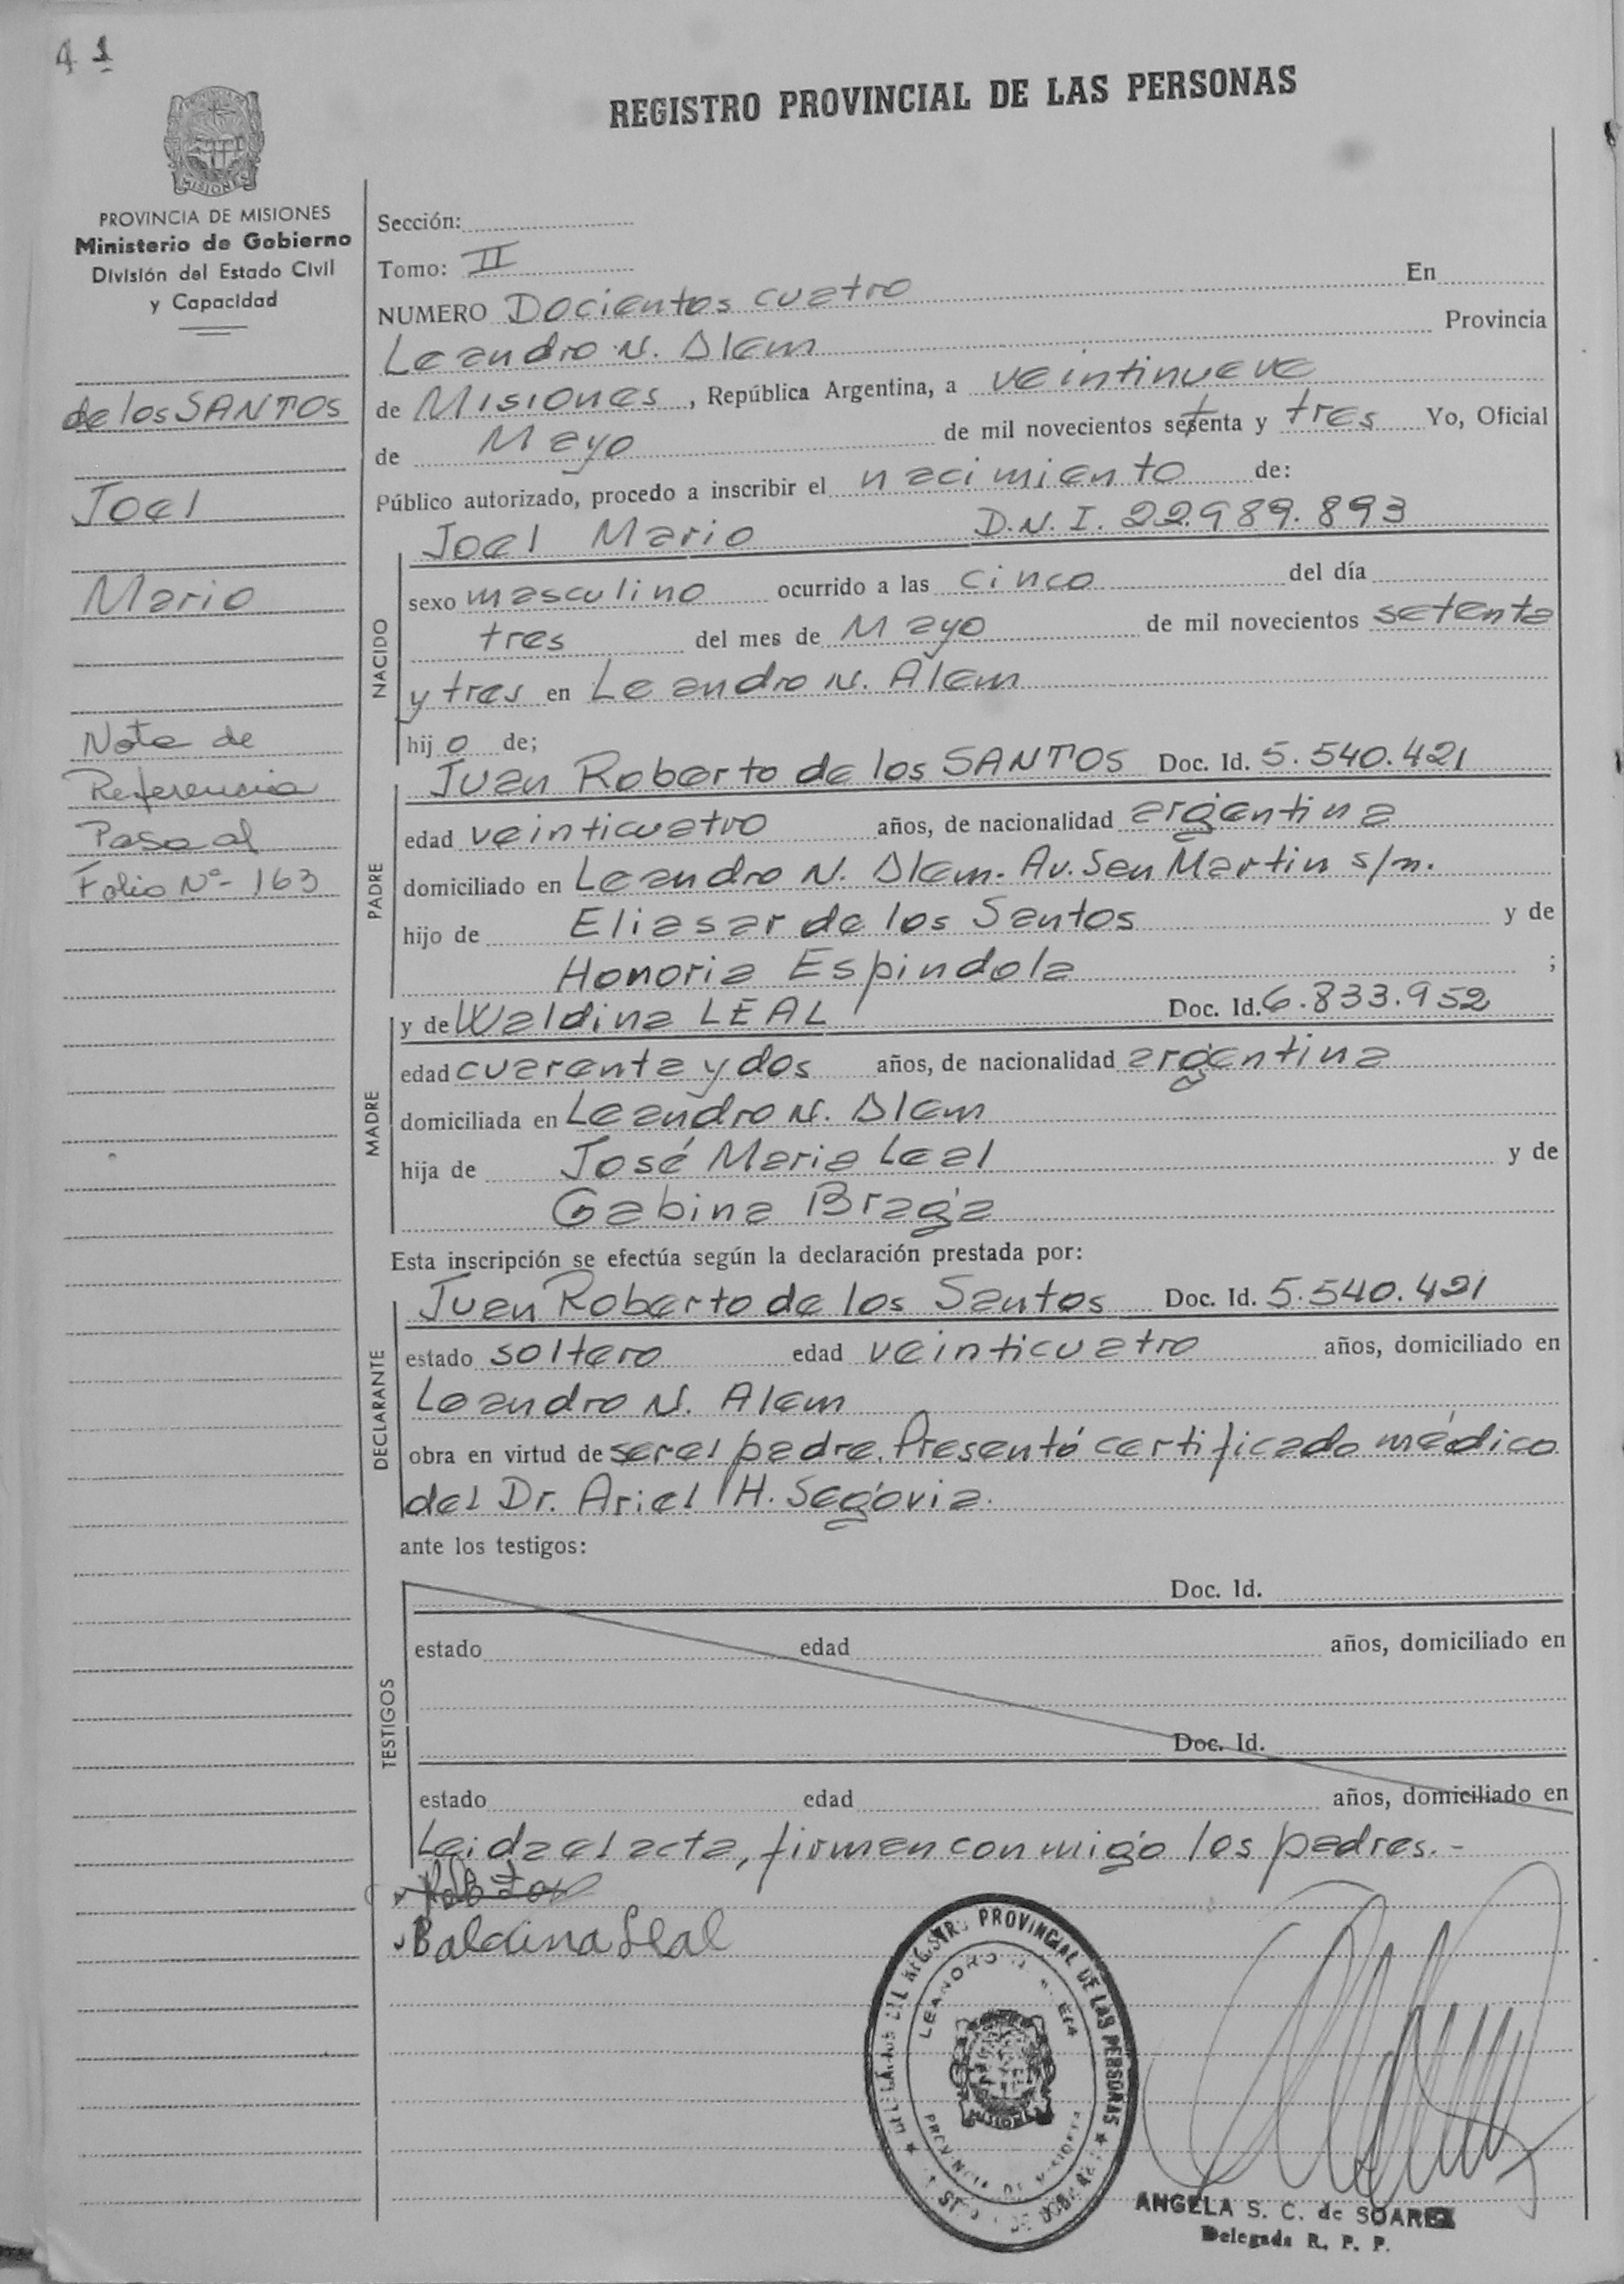 4 1
REGISTRO PROVINCIAL DE LAS PERSONAS
MISIONES
PROVINCIA DE MISIONES
Ministerio de Gobierno
División del Estado Civil
y Capacidad
de los SANTOS
Joel
Mario
Nota de
Referencia
Pasa al
Folio Nº- 163
Sección:
Tomo: II
NUMERO Docientos cuatro En
Leandro N. Alem Provincia
de Misiones, República Argentina, a veintinueve
de Mayo de mil novecientos setenta y tres Yo, Oficial
Público autorizado, procedo a inscribir el nacimiento de:
Joel Mario D.N.I. 22.989.893
NACIDO
sexo masculino ocurrido a las cinco del día
tres del mes de Mayo de mil novecientos setenta
y tres en Leandro N. Alem
hijo de;
Juan Roberto de los SANTOS Doc. Id. 5.540.421
PADRE
edad veinticuatro años, de nacionalidad argentina
domiciliado en Leandro N. Alem. Av. San Martin s/n.
hijo de Eliasar de los Santos y de
Honoria Espindola ;
y de Waldina LEAL Doc. Id. 6.833.952
MADRE
edad cuarenta y dos años, de nacionalidad argentina
domiciliada en Leandro N. Alem
hija de José Maria Leal y de
Gabina Braga
Esta inscripción se efectúa según la declaración prestada por:
Juan Roberto de los Santos Doc. Id. 5.540.421
DECLARANTE
estado soltero edad veinticuatro años, domiciliado en
Leandro N. Alem
obra en virtud de ser el padre. Presentó certificado médico
del Dr. Ariel H. Segovia.
ante los testigos:
TESTIGOS
Doc. Id.
estado edad años, domiciliado en
Doc. Id.
estado edad años, domiciliado en
Leida el acta, firman conmigo los padres.-
Baldina Leal
PROVINCIAL DE LAS PERSONAS
LEANDRO
PROVINCIA DE MISIONES
ANGELA S. C. de SOAREZ
Delegada R. P. P.